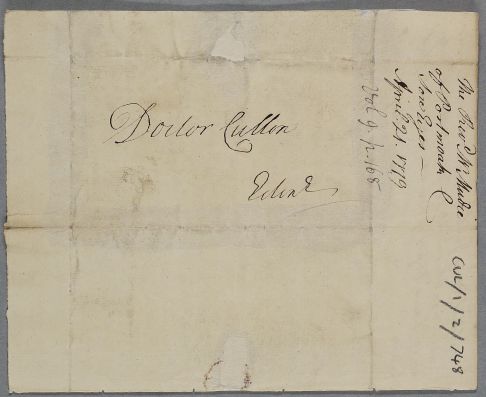 Doctor Cullen
Edinr
The Revd Mr
of Portmoak C
Sore Eyes
April 21. 1779
Vol 9. p. 168
CUL/1/2/748